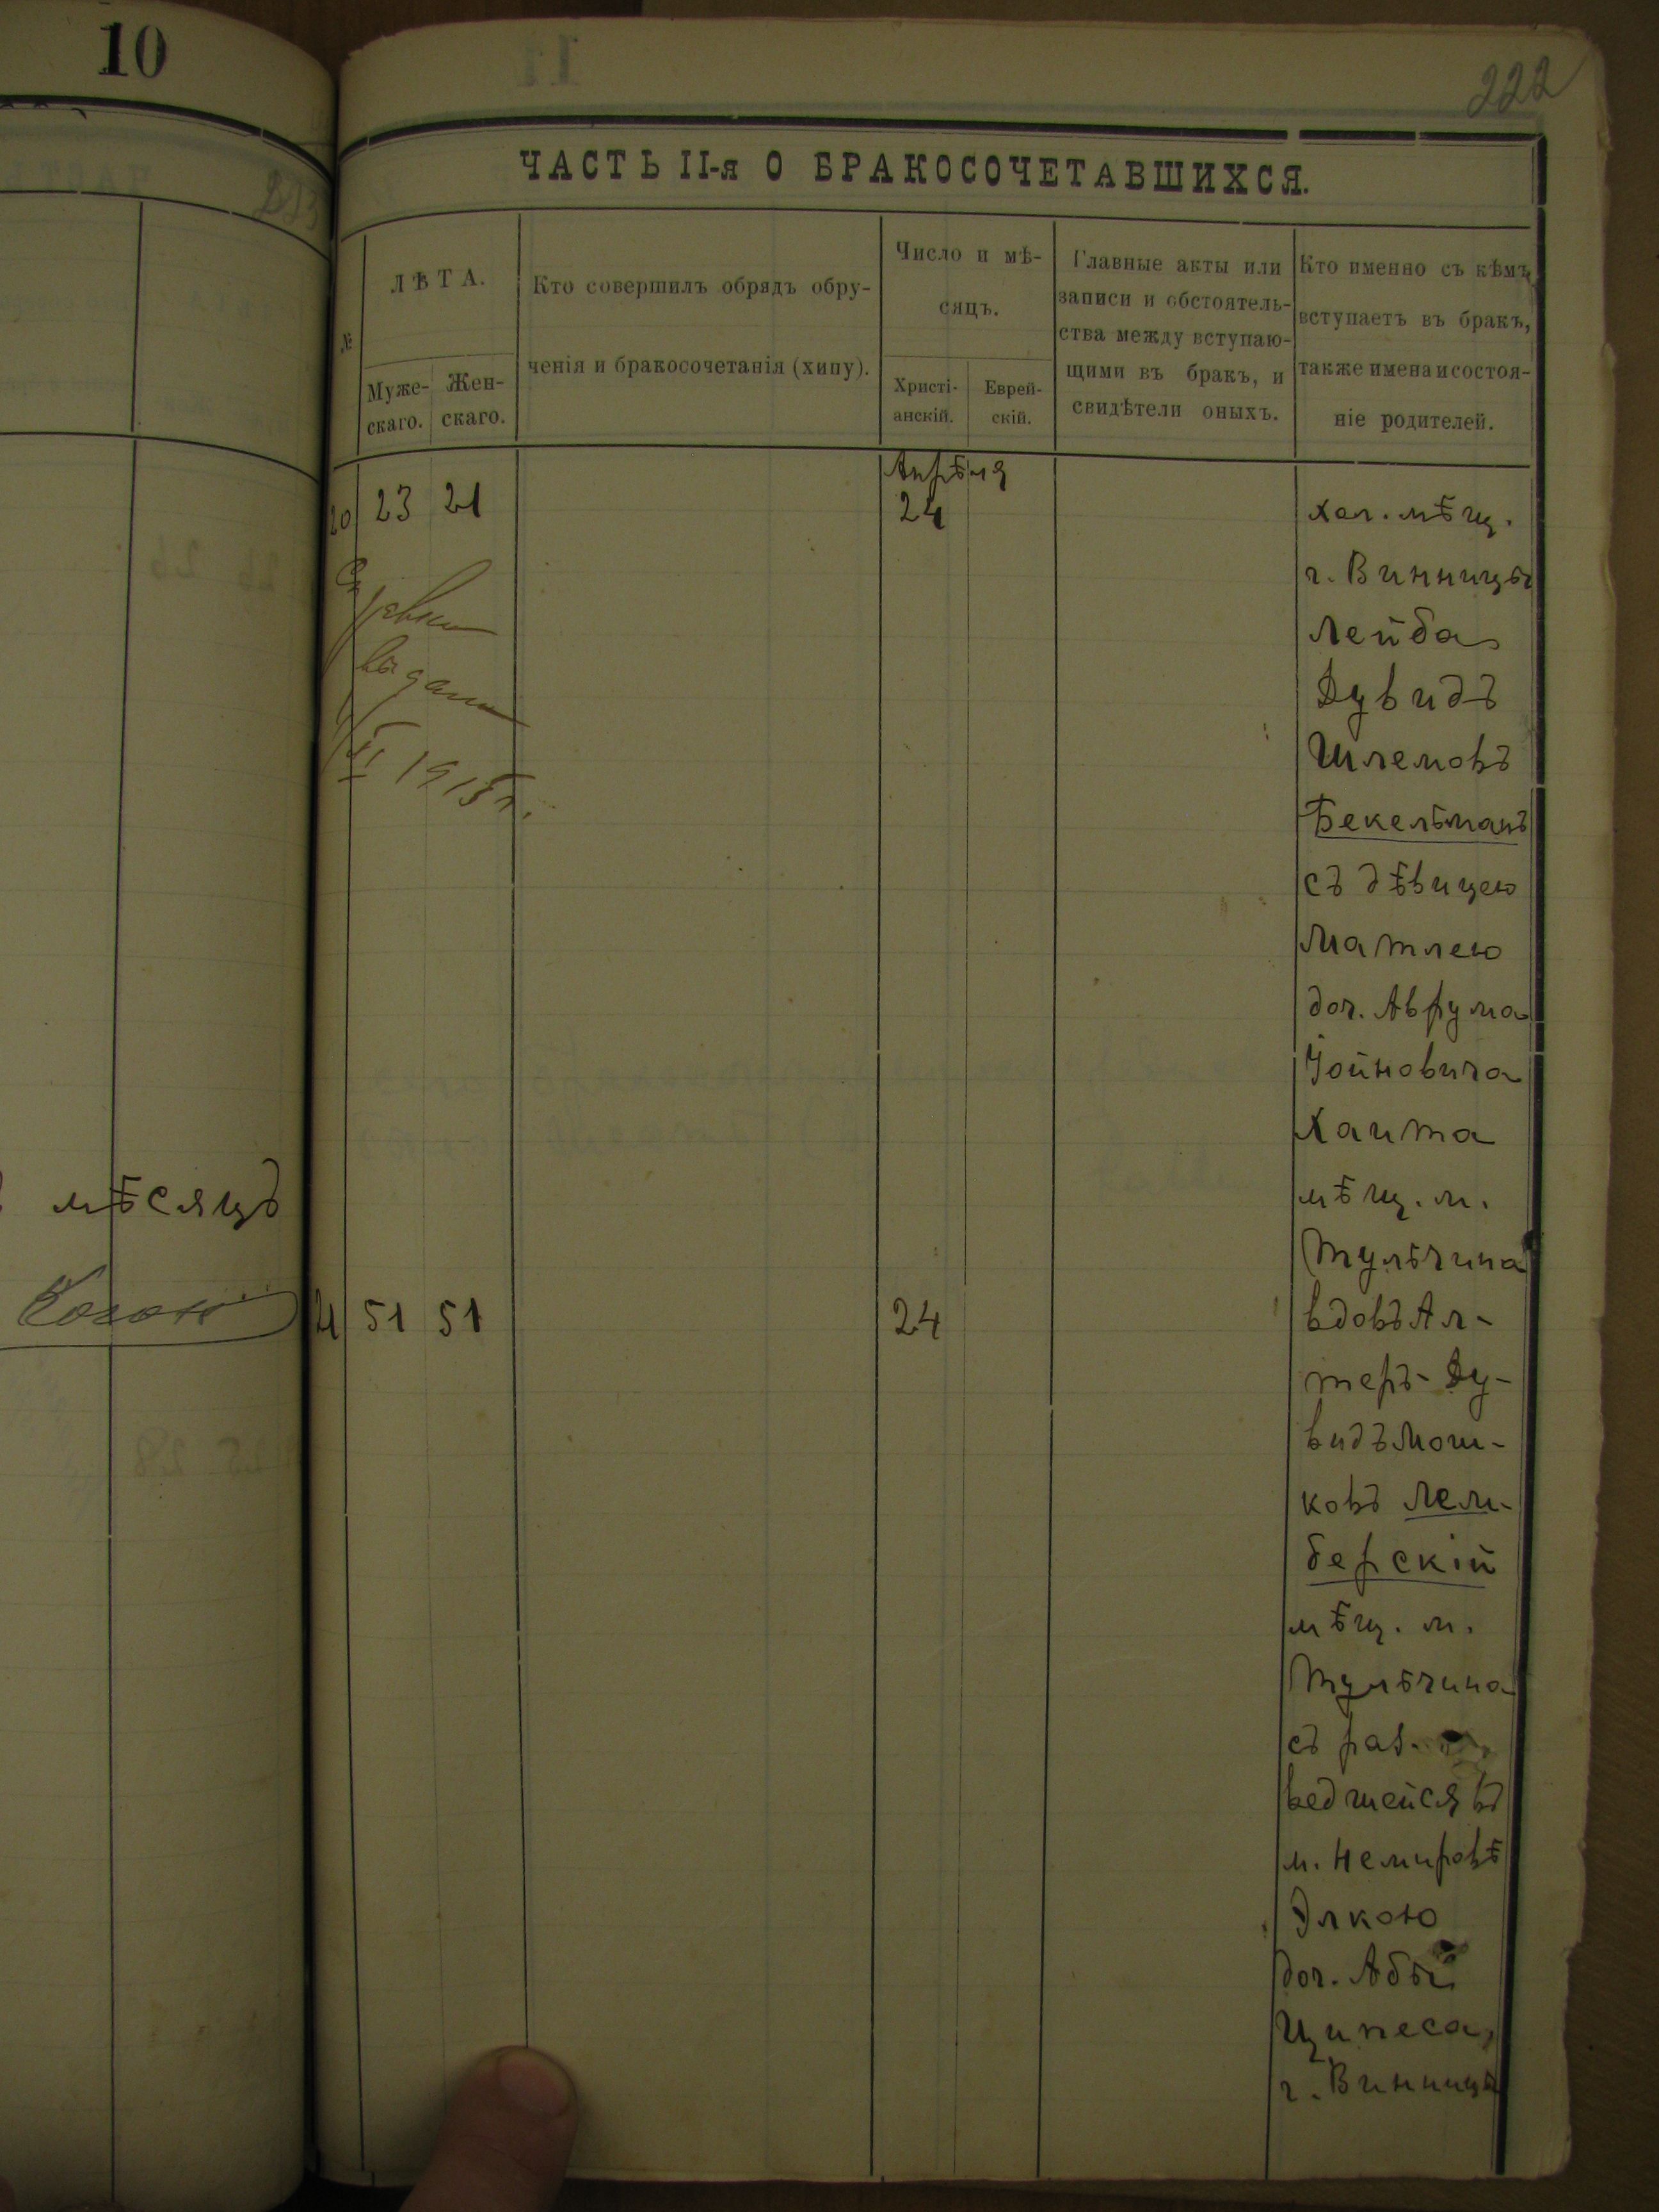 10
222
мѣсяцъ
Коганъ
ЧАСТЬ II-я О БРАКОСОЧЕТАВШИХСЯ.
№
ЛѢТА.
Муже-
скаго.
Жен-
скаго.
Кто совершилъ обрядъ обру-
ченія и бракосочетанія (хипу).
Число и мѣ-
сяцъ.
Христі-
анскій.
Еврей-
скій.
Главные акты или
записи и обстоятель-
ства между вступаю-
щими въ бракъ, и
свидѣтели оныхъ.
Кто именно съ кѣмъ
вступаетъ въ бракъ,
также имена и состоя-
ніе родителей.
Апрѣля
20 23 21 24
1915 г.
хол. мѣщ.
г. Винницы
Лейба
Дувидъ
Шлемовъ
Бекельманъ
съ дѣвицею
Матлею
доч. Аврума
Іойновича
Хаита
мѣщ. м.
Тульчина
21 51 51 24
вдовъ Ал-
теръ-Ду-
видъ Мош-
ковъ Лем-
берскій
мѣщ. м.
Тульчина
съ раз-
ведшейся въ
м. Немировѣ
Элкою
доч. Абы
Ципеса,
г. Винницы